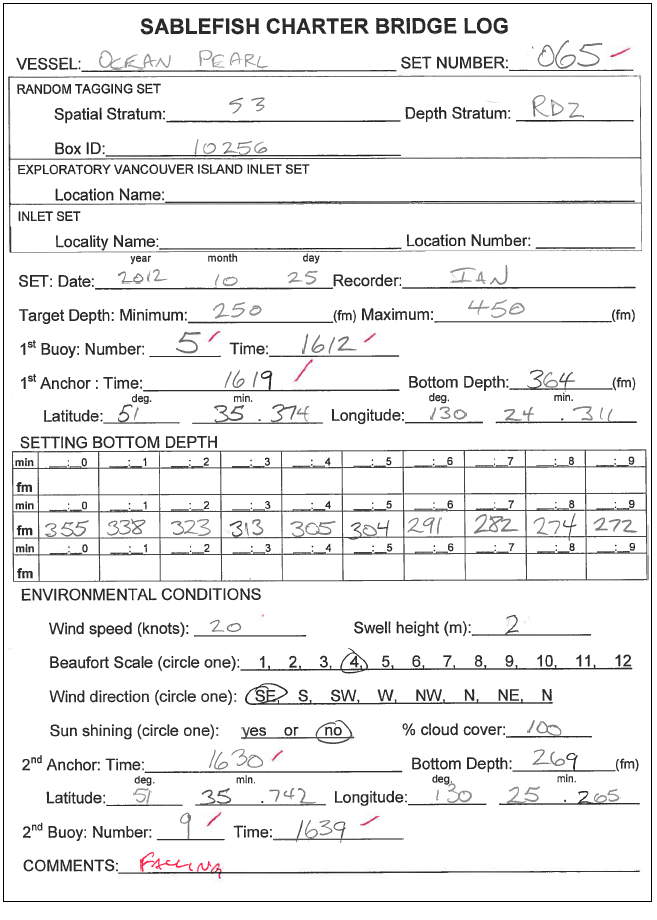 SABLEFISH CHARTER BRIDGE LOG
VESSEL: OCEAN PEARL SET NUMBER: 065
RANDOM TAGGING SET
Spatial Stratum: 53 Depth Stratum: RD2
Box ID: 10256
EXPLORATORY VANCOUVER ISLAND INLET SET
Location Name:
INLET SET
Locality Name: Location Number:
year month day
SET: Date: 2012 10 25 Recorder: IAN
Target Depth: Minimum: 250 (fm) Maximum: 450 (fm)
1st Buoy: Number: 5 Time: 1612
1st Anchor : Time: 1619 Bottom Depth: 364 (fm)
deg. min. deg. min.
Latitude: 51 35 . 374 Longitude: 130 24 . 311
SETTING BOTTOM DEPTH
min __:__0 __:__1 __:__2 __:__3 __:__4 __:__5 __:__6 __:__7 __:__8 __:__9
fm
min __:__0 __:__1 __:__2 __:__3 __:__4 __:__5 __:__6 __:__7 __:__8 __:__9
fm 355 338 323 313 305 304 291 282 274 272
min __:__0 __:__1 __:__2 __:__3 __:__4 __:__5 __:__6 __:__7 __:__8 __:__9
fm
ENVIRONMENTAL CONDITIONS
Wind speed (knots): 20 Swell height (m): 2
Beaufort Scale (circle one): 1, 2, 3, 4, 5, 6, 7, 8, 9, 10, 11, 12
Wind direction (circle one): SE, S, SW, W, NW, N, NE, N
Sun shining (circle one): yes or no % cloud cover: 100
2nd Anchor: Time: 1630 Bottom Depth: 269 (fm)
deg. min. deg. min.
Latitude: 51 35 .742 Longitude: 130 25 . 265
2nd Buoy: Number: 9 Time: 1639
COMMENTS: